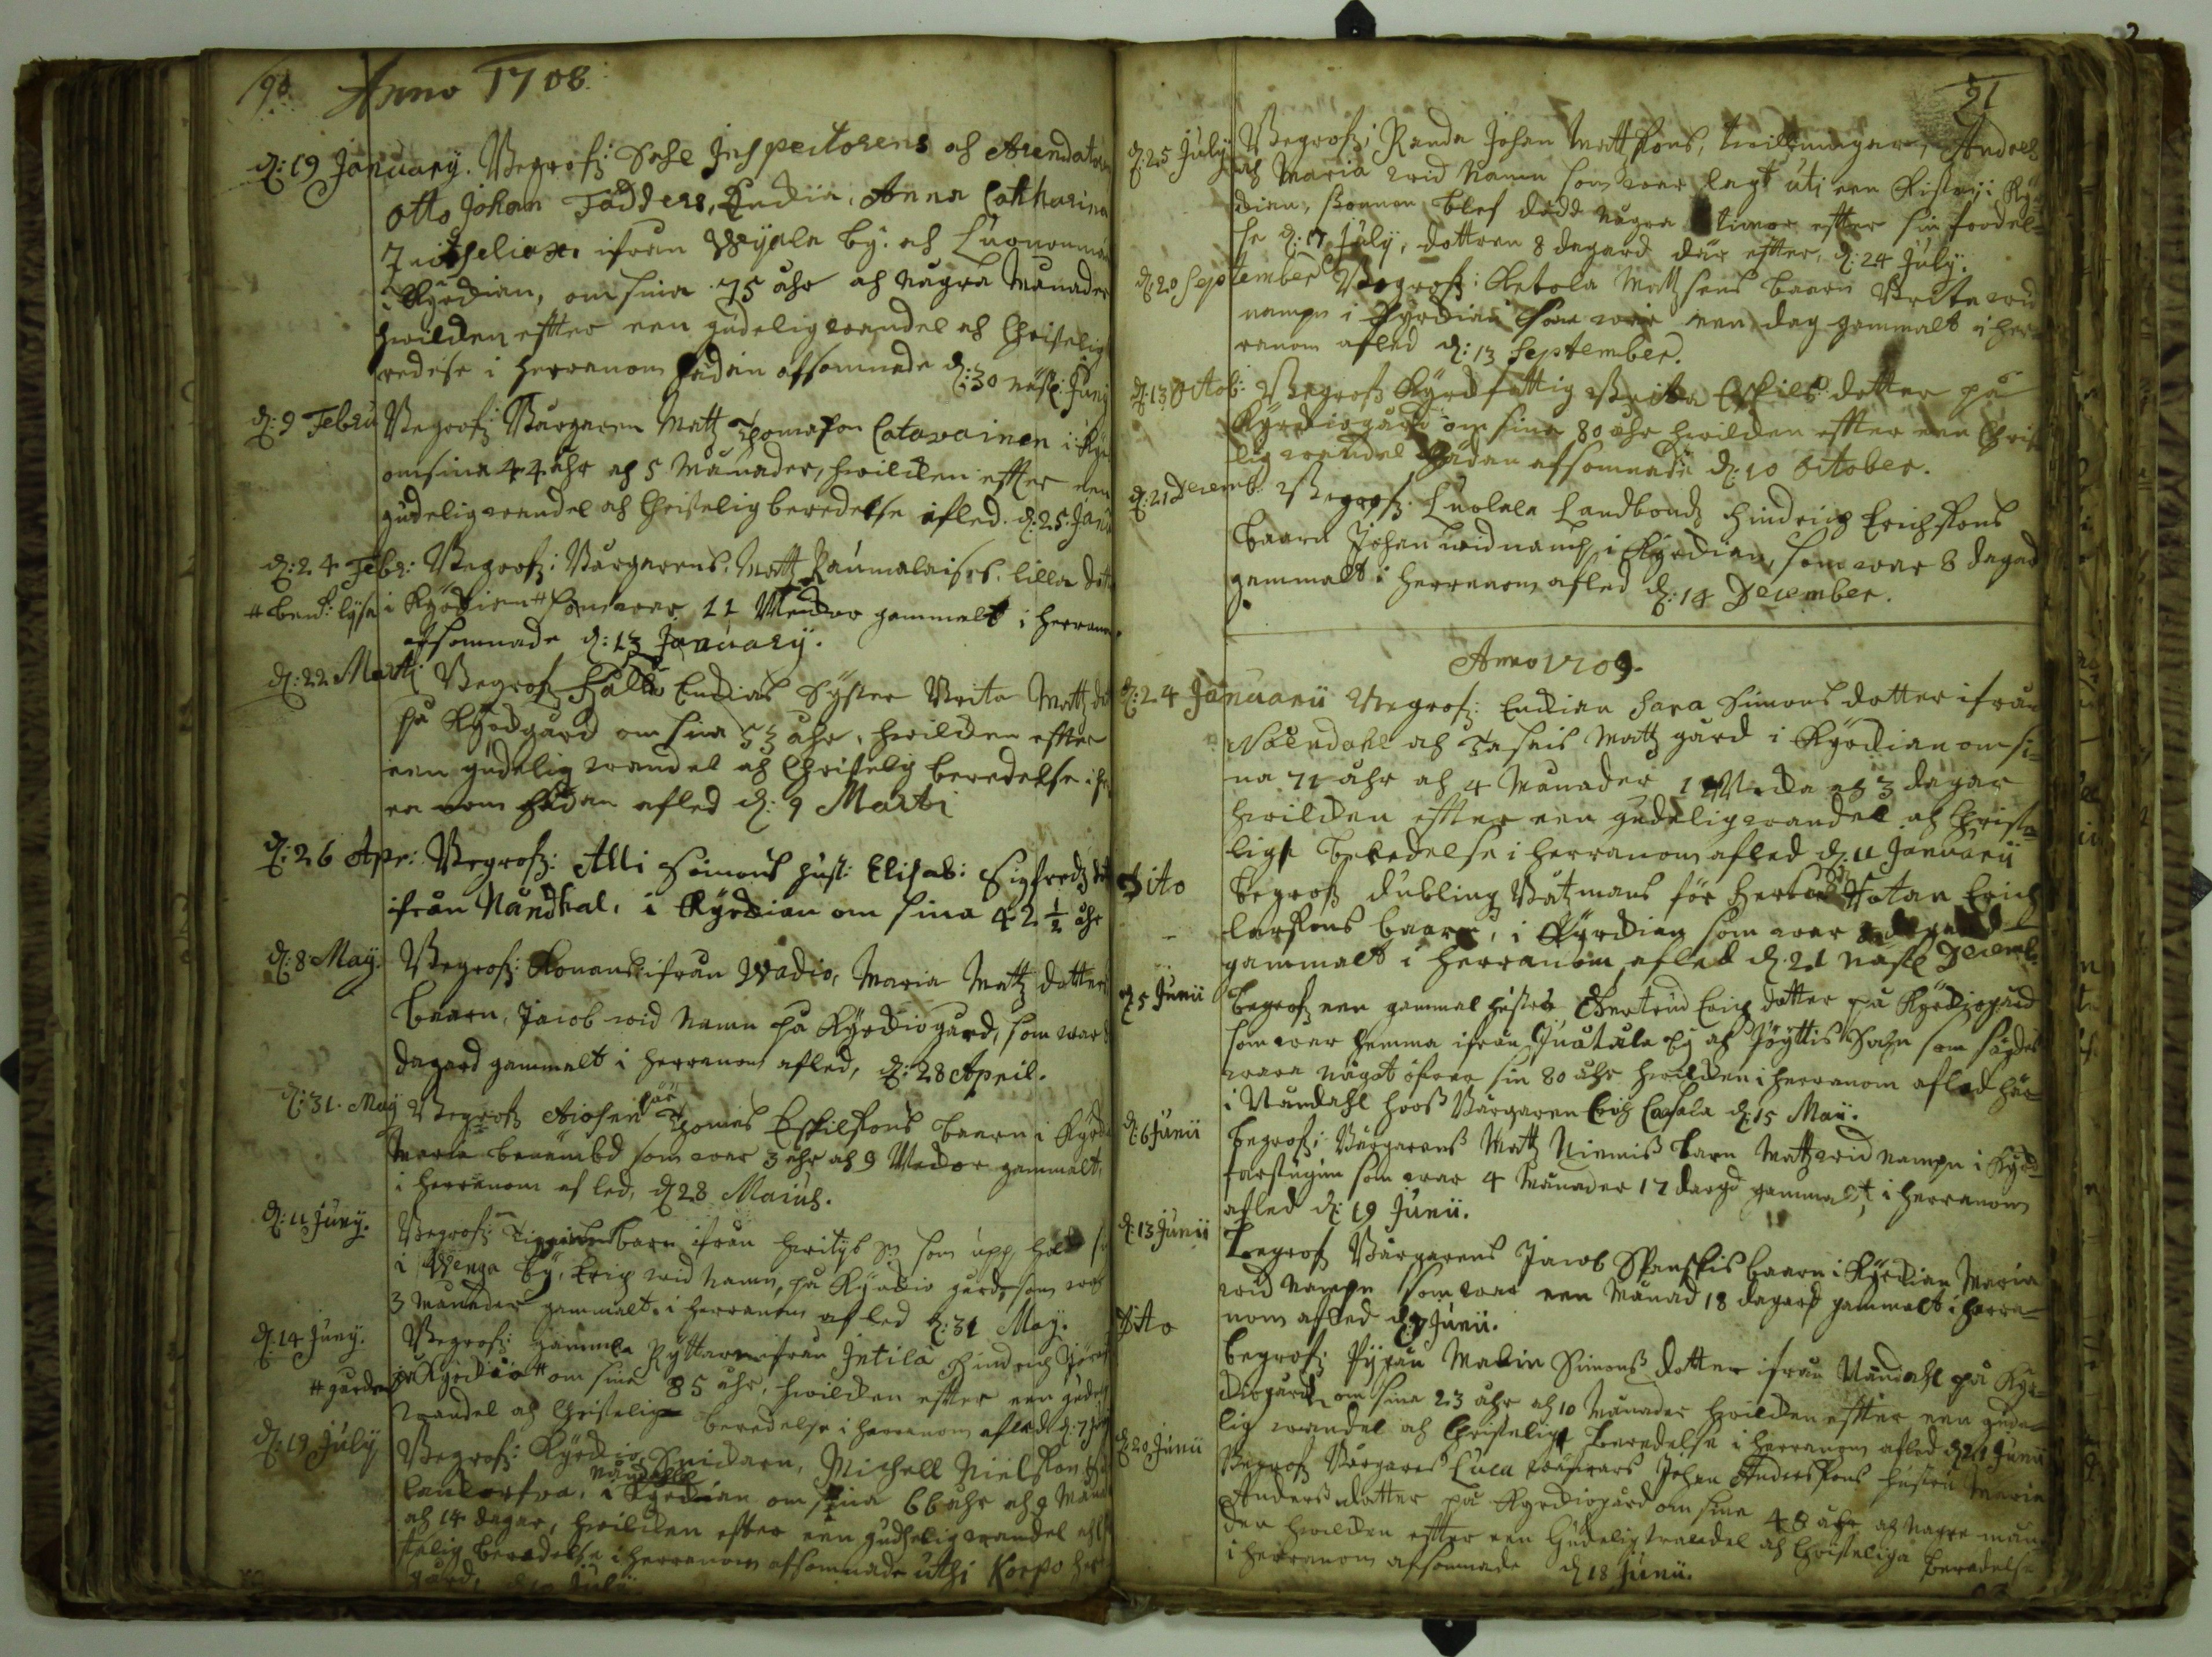 90 Anno 1708.
d: 19 January. Begrofz: Sahl Inspectorens ah Arendator
Otto Johan Fadders, Enckia, Anna Catharina
ifrån Wijala by. ah Luonnonma
i Kyrckian, om sina 75 åhr ah några Månader
hwilcken effter een gudelig wandel ah Christelig
redelse i Herranom hädan afsomnade d: 30 näst. Juny
d: 9 Febru Begrofz Borgaren Mattz Thomason Catavainen i Kyr
om sina 44 åhr ah 5 Månader, hwilcken effter een
gudelig wandel ah Christelig beredelse afled. d: 25. Janu
d: 24 Febr: Begrofz: Borgarens, Mattz Raumalaises. lilla dott
# ben:d lijsa i Kyrckian # som war 11 Weckor gammalt i Herrano
afsomnade d: 13 January.
d: 22 Marti Begrofz Enckias Syster Brita Mattz dot
på Kyrckgård om sina 53 åhr, hwilcken effter
een gudelig wandel ah Christelig beredelse i he
ra nom hädan afled d: 9 Marti
d: 26 Apr: Begrofz: Alli Simons hust: Elisab: Sigfredz dot
ifrån Nåndhal, i Kyrckian om sina 42 1/2 åhr
d: 8 May. Begrofz: Konans ifrån Wadio, Maria Mattz dotters
baarn, Jacob wid namn på Kyrckiogård, som war
dagard gammalt i Herranom afled, d: 28 April.
d: 31. May Begrofz Thomas Eskilsons baarn i Kyrck
Maria benämbd som war 3 åhr ah 9 Weckor gammalt,
i Herranom af led, d 28 Maius.
d: 11 Juny. Begrofz barn ifrån som upp
i Wenga by, Erich wid namn, på Kyrckio gård, som war
3 Månader gammalt. i Herranom af led d: 31 May.
d: 14 Juny. Begrofz gammla Ryttaren ifrån Jntila Hindrich
# gården på Kyrckio # om sina 85 åhr, hwilcken effter een gude
wandel ah Christelig beredelse i Herranom afled d: 7 Ju
d: 19 July Begrofz: Kyrckio Snickarn, Michell Nielson
Nåndahl
i Kyrckian om sina 66 åhr ah 9 Måna
ah 14 dagar, hwilcken effter een gudhelig wandel ah Ch
stelig beredelse i Herranom afsomnade uthi Korpo her
gård, July
91
d: 25 July Begrofz: Randa Johan Mattsons, twillingar, Anders
ah Maria wid namn som war lagt uti een Kista i Kyr
ckian, sonnen blef dödd några timar effter sin födel-
se d: 17 July, dottren 8 dagard där effter, d: 24 July.
d: 20 September Begrofz: Ketola Mattzsons baarn Brita wid
nampn i Kyrckian som war een dag gammalt i Her-
ranom afled d: 13 September.
d: 13 Octob: Begrofz Kyrckfattig Brita Eskils dotter på
Kyrckiogård om sina 80 åhr hwilcken effter een Christ
lig wandel hädan afsomnade d: 10 October.
d: 21 Decemb: Begrofz Luolala Landbondz Hindrich Erichsons
baarn Johan wid namn, i Kyrckian, som war 8 dagard
gammalt i Herranom afled d: 14 December.
Anno 1709.
d: 24 Januarii Begrofz: Enckian Sara Simons dotter ifrån
Nåendahl ah Tasais Mattz gård i Kyrckian om si-
na 71 åhr ah 4 Månader 1 Wecka ah 3 dagar
hwilcken effter een gudelig wandel ah Christe-
lig beredelse i Herranom afled d. 11 Januarii
Dito begrofz dubling Båtzmans för Erich
larssons baarn, i Kyrckian som war
gammalt i Herranom afled d. 21 näst Decemb
d 5 Junii begrofz een gammal hustru Giertrud Erich dotter på Kyrckiogård
som war hemma ifrån by ah Pöyttis Sokn som sägdes
wara något öfwer sin 80 åhr hwilcken i Herranom afled här
i Nåndahl hooss Borgaren Erich Casala d: 15 Maij.
d: 6 Junii begrofz: Borgarenss Mattz Niemiss barn Mattz wid nampn i Kyrck
farstugun som war 4 Månader 17 dargd gammalt, i Herranom
afled d: 19 Junii.
d: 13 Junii Begrofz Borgarens Jacob Spanskis baarn i Kyrckian Maria
wid nampn som war een Månad 18 dagard gammalt i Herra-
nom afled d: 7 Junii.
Dito begrofz Pijgan Malin Simonss dotter ifrån Nåndahl på Kyr-
ckiogård, om sina 23 åhr ah 10 Månader hwilcken effter een gude-
lig wandel ah Christelig beredelse i Herranom afled d 21 Junii
d: 20 Junii Begrofz Borgares Luca Johan Anderssons hustru Maria
Anderss dotter på Kyrckiogård om sina 48 åhr ah några måna
der hwilcken effter een Gudelig wandel ah Christeliga beredelse
i Herranom afsomnade d 18 Junii.